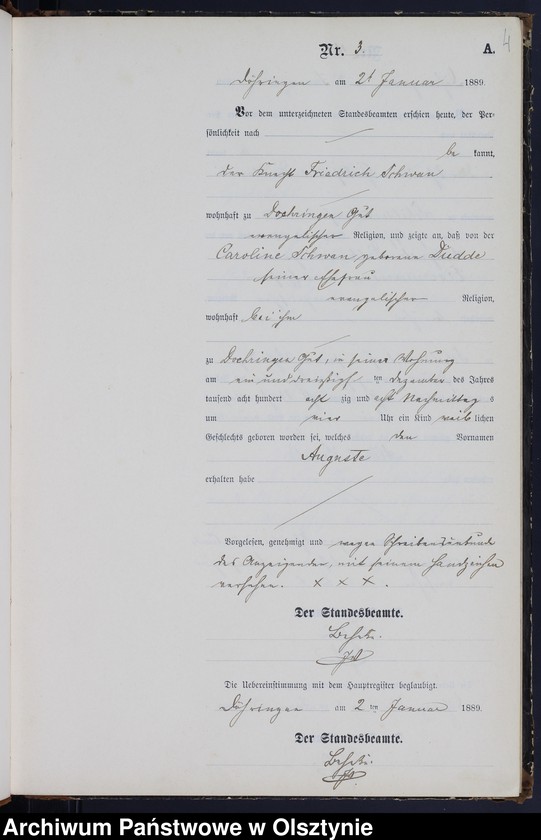 Nr. 3.
A.
4
Döhringen am 2t Januar 1889.
Vor dem unterzeichneten Standesbeamten erschien heute, der Per-
sönlichkeit nach
be kannt,
der Knecht Friedrich Schwan
wohnhaft zu Doehringen Gut
evangelischer Religion, und zeigte an, daß von der
Caroline Schwan geborene Dudde
seiner Ehefrau
evangelischer Religion,
wohnhaft bei ihm
zu Doehringen Gut, in seiner Wohnung
am ein und dreißigst ten Dezember des Jahres
tausend acht hundert acht zig und acht Nachmittag s
um vier Uhr ein Kind weib lichen
Geschlechts geboren worden sei, welches den Vornamen
Auguste
erhalten habe
Vorgelesen, genehmigt und wegen Schreibensunkunde
des Anzeigenden, mit seinem Handzeichen
versehen. x x x.
Der Standesbeamte.
Die Uebereinstimmung mit dem Hauptregister beglaubigt.
Döhringen am 2 ten Januar 1889.
Der Standesbeamte.
Archiwum Państwowe w Olsztynie